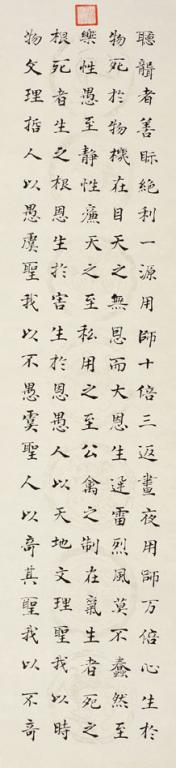 聽聾者善眎絕利一源用師十倍三返晝夜用師万倍心生於
物死於物機在目天之無恩而大恩生迅雷烈風莫不蠢然至
樂性愚至靜性廉天之至私用之至公禽之制在氣生者死之
根死者生之根恩生於害生於恩愚人以天地文理聖我以時
物文理哲人以愚虞聖我以不愚虞聖人以奇其聖我以不奇